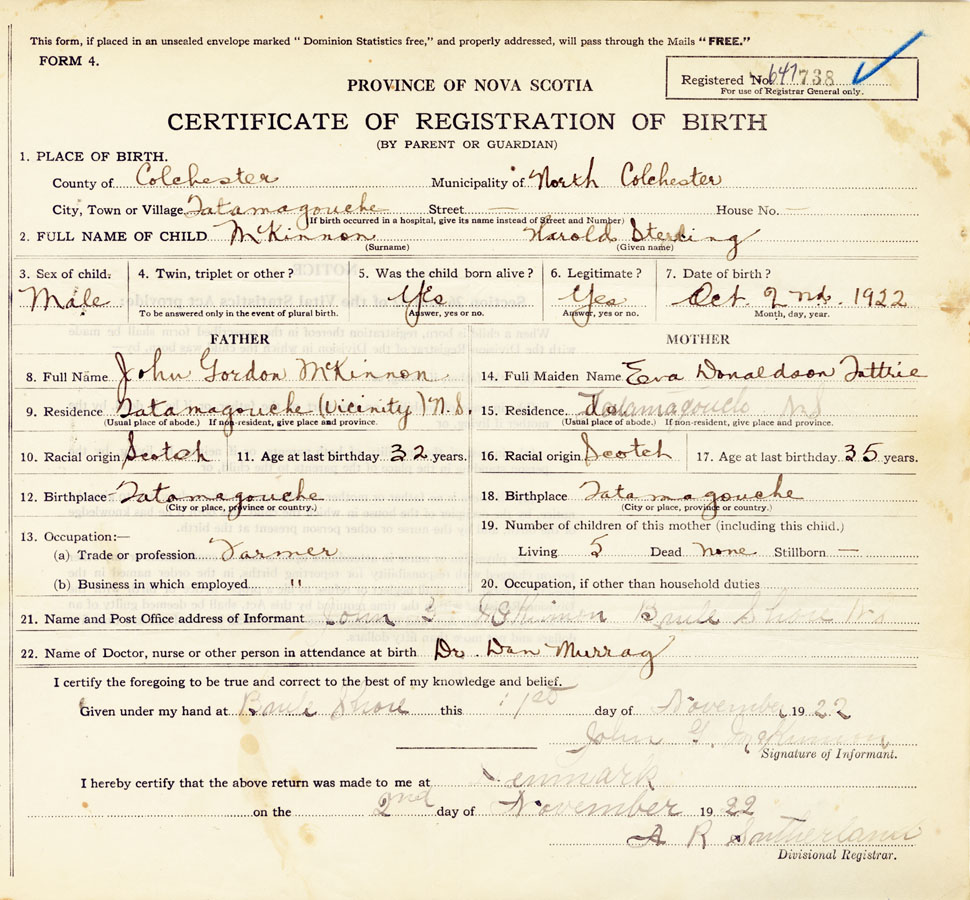 This form, if placed in an unsealed envelope marked "Dominion Statistics free," and properly addressed, will pass through the Mails "FREE."
FORM 4.
Registered No. 647738
For use of Registrar General only.
PROVINCE OF NOVA SCOTIA
CERTIFICATE OF REGISTRATION OF BIRTH
(BY PARENT OR GUARDIAN)
1. PLACE OF BIRTH.
County of Colchester Municipality of North Colchester
City, Town or Village Tatamagouche Street — House No. —
(If birth occurred in a hospital, give its name instead of Street and Number)
2. FULL NAME OF CHILD McKinnon Harold Sterling
(Surname) (Given name)
3. Sex of child. 4. Twin, triplet or other? 5. Was the child born alive? 6. Legitimate? 7. Date of birth?
Male Yes Yes Oct. 2nd. 1922
To be answered only in the event of plural birth. Answer, yes or no. Answer, yes or no. Month, day, year.
FATHER MOTHER
8. Full Name John Gordon McKinnon 14. Full Maiden Name Eva Donaldson Tattrie
9. Residence Tatamagouche (Vicinity) N.S. 15. Residence Tatamagouche NS
(Usual place of abode.) If non-resident, give place and province. (Usual place of abode.) If non-resident, give place and province.
10. Racial origin Scotch 11. Age at last birthday 32 years. 16. Racial origin Scotch 17. Age at last birthday 35 years.
12. Birthplace Tatamagouche 18. Birthplace Tatamagouche
(City or place, province or country.) (City or place, province or country.)
19. Number of children of this mother (including this child.)
13. Occupation:—
(a) Trade or profession Farmer Living 5 Dead none Stillborn —
(b) Business in which employed " 20. Occupation, if other than household duties
21. Name and Post Office address of Informant John G McKinnon Brule Shore NS
22. Name of Doctor, nurse or other person in attendance at birth Dr. Dan Murray
I certify the foregoing to be true and correct to the best of my knowledge and belief.
Given under my hand at Brule Shore this 1st day of November 1922
John G. McKinnon
Signature of Informant.
I hereby certify that the above return was made to me at Denmark
on the 2nd day of November 1922
A R Sutherland
Divisional Registrar.